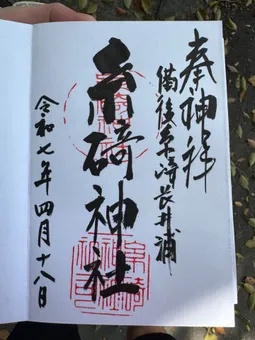 奉神拝
備後糸崎長井浦
糸碕神社
令和七年四月十八日